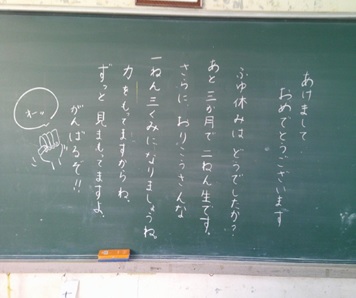 あけまして
おめでとうございます
ふゆ休みは どうでしたか？
あと三か月で 二ねん生です。
さらに おりこうさんな
一ねん三くみに なりましょうね。
力をもってますからね。
ずっと 見まもってますよ。
がんばるぞ!!